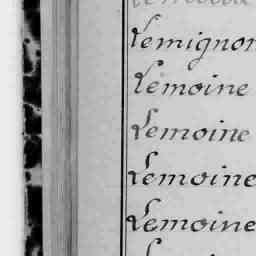 Lemignon
Lemoine
Lemoine
Lemoine
Lemoine